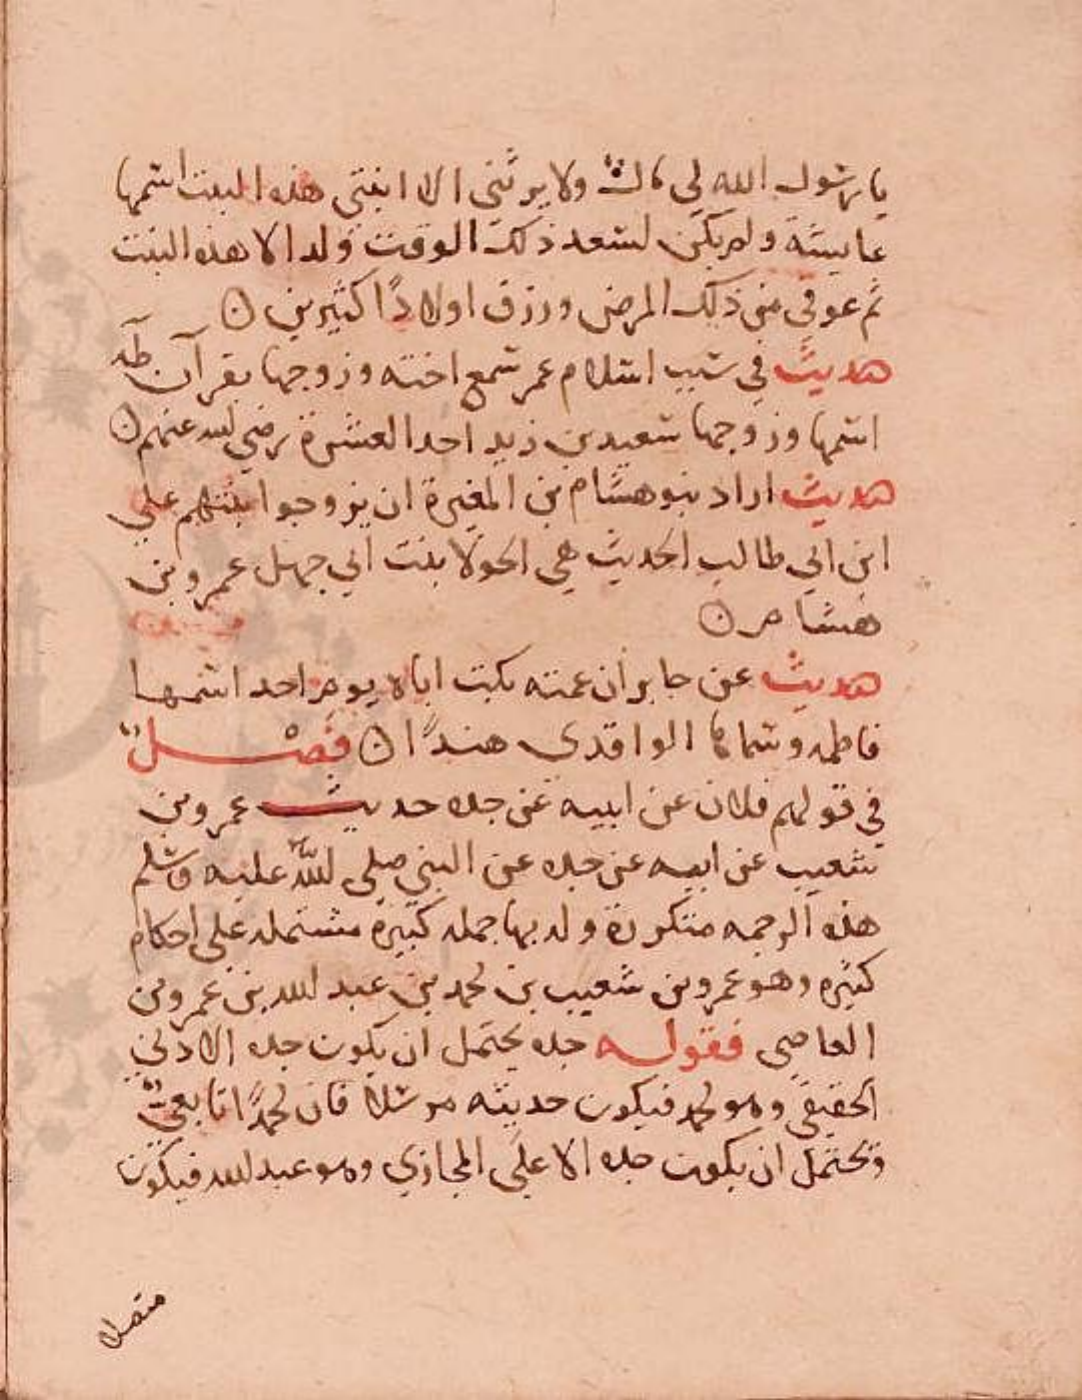 يا رسول الله لي مال ولا يرثني الا ابنتي هذه البنت اسمها
عايشة ولم يكن لسعد ذلك الوقت ولد الا هذه البنت
ثم عوفي من ذلك المرض ورزق اولادًا كثيرين ن
حديث في سبب اسلام عمر سمع اخته وزوجها يقرآن طه
اسمها وزوجها سعيد بن زيد احد العشرة رضي الله عنهم ن
حديث اراد بنو هشام بن المغيرة ان يزوجوا ابنتهم علي
ابن ابي طالب الحديث هي الحولا بنت ابي جهل عمرو بن
هشام ن
حديث عن جابر ان عمته بكت اباه يوم احد اسمها
فاطمه وسماها الواقدي هندًا ن فصل
في قولهم فلان عن ابيه عن جده حديث عمرو بن
شعيب عن ابيه عن جده عن النبي صلى الله عليه وسلم
هذه الرجمه متكررة ولد بها جمله كبيرة مشتمله على احكام
كثيره وهو عمرو بن شعيب بن محمد بن عبد الله بن عمرو بن
العاصي فقوله جده يحتمل ان يكون جده الادني
الحقيقي وهو محمد فيكون حديثه مرسلا فان محمدًا تابعي
ويحتمل ان يكون جده الاعلى المجازي وهو عبد الله فيكون
متصلا